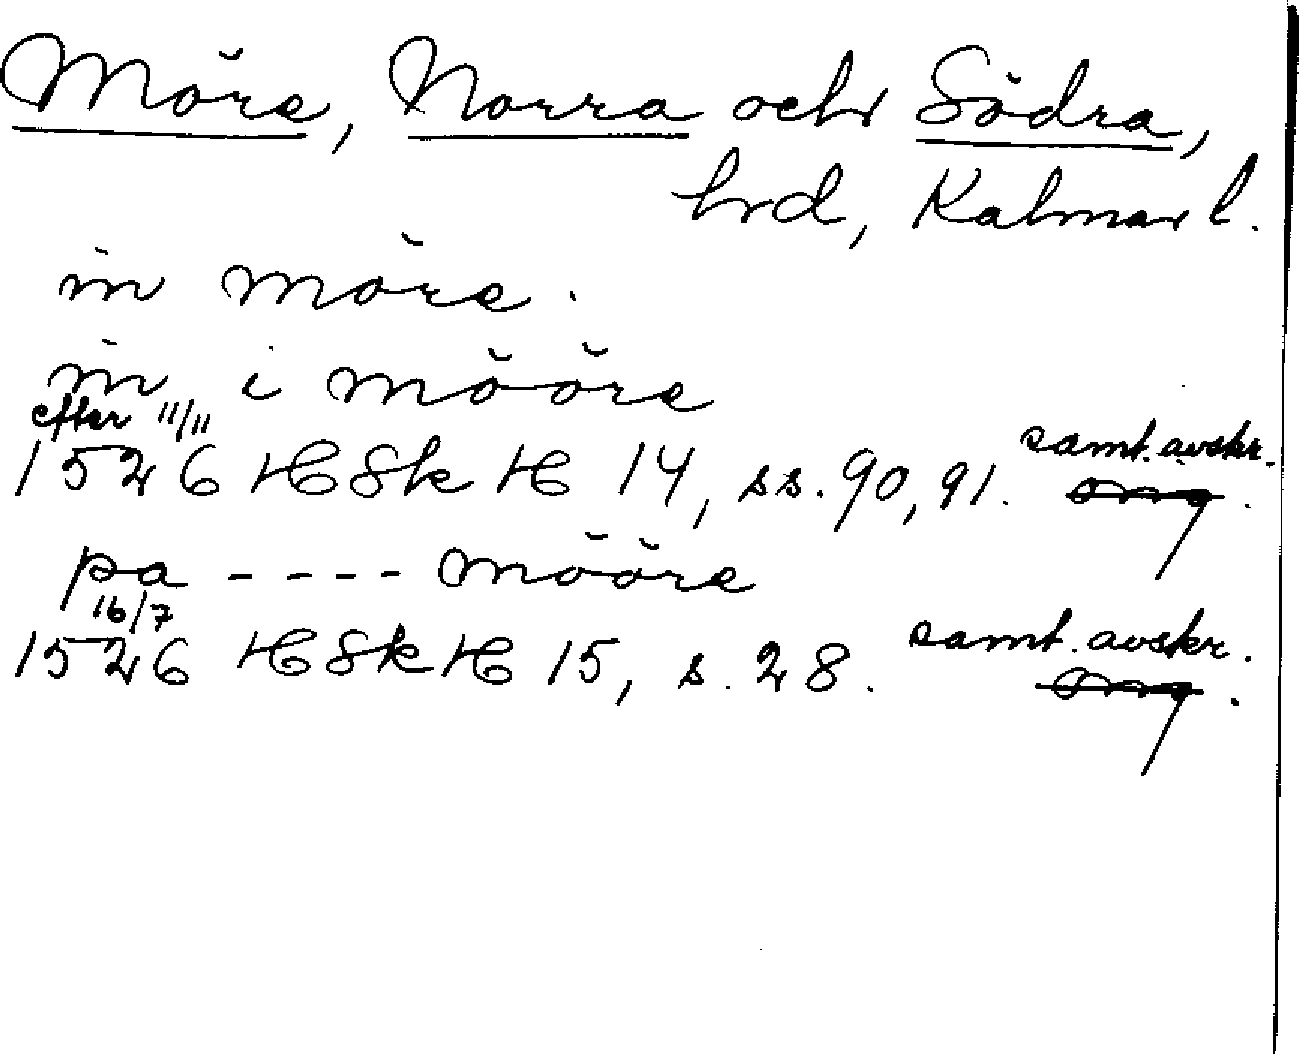 Möre, Norra och Södra,
hrd, Kalmar l.
in möre.
in i mööre
efter 11/11
1526 HSk H 14, ss. 90, 91. samt. avskr.
på ---- mööre
16/7
1526 HSk H 15, s. 28. samt. avskr.